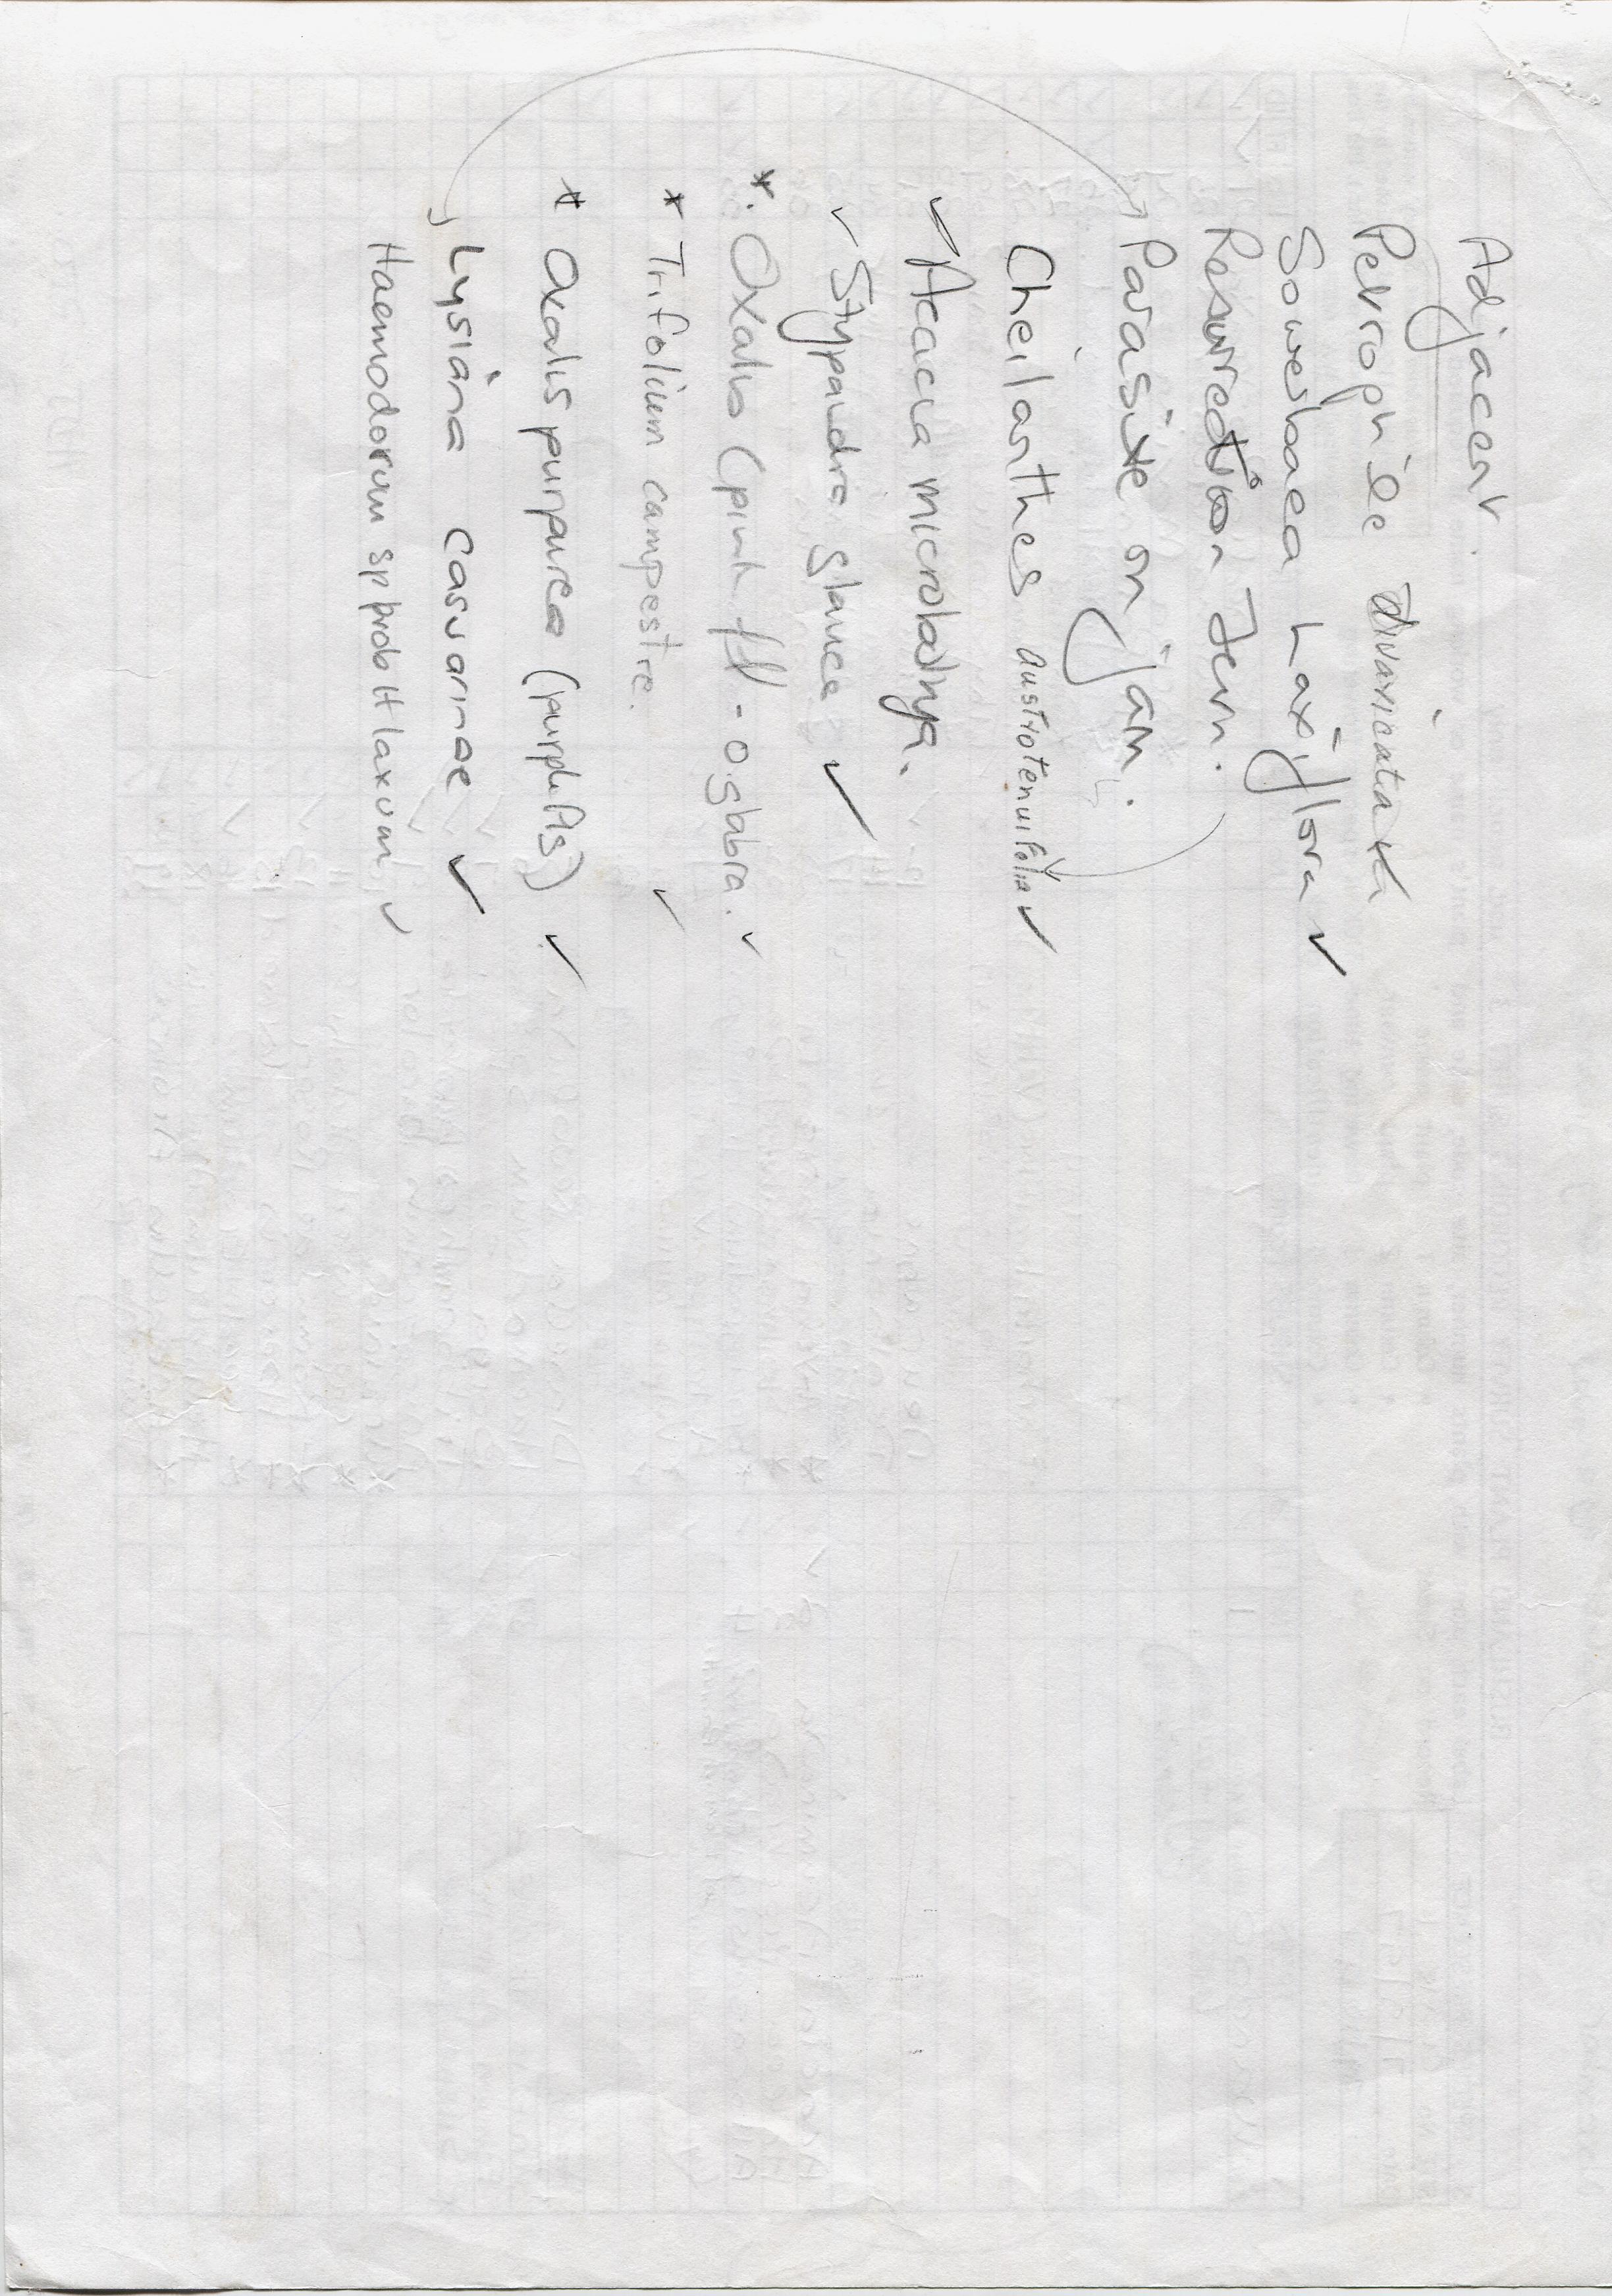 Adjacent.
Petrophile divaricata
Sowerbaea Laxiflora ✓
Resurrection Fern.
Parasite on jam.
Cheilanthes austrotenuifolia ✓
✓ Acacia microbotrya.
✓ Stypandra glauca ✓
* Oxalis (pink fl) - O. glabra. ✓
* Trifolium campestre. ✓
* Oxalis purpurea (purple fls) ✓
Lysiana casuarinae ✓
Haemodorum sp prob H laxum ✓